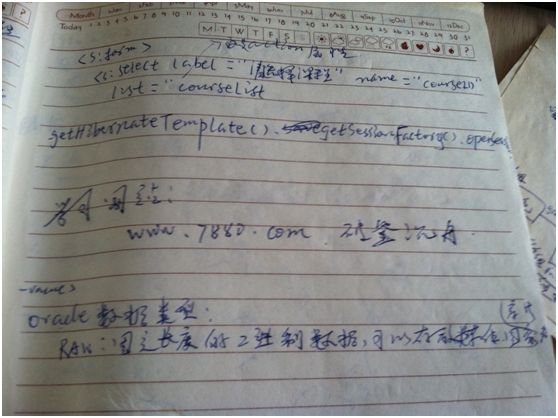 Month 1Jan 2Feb 3Mar 4Apr 5May 6Jun 7Jul 8Aug 9Sep 10Oct 11Nov 12Dec
Today 1 2 3 4 5 6 7 8 9 10 11 12 13 14 15 16 17 18 19 20 21 22 23 24 25 26 27 28 29 30 31
M T W T F S S
<s:form> action属性
<s:select label="请选择课程" name="courseID"
list="courseList
getHibernateTemplate().getSessionFactory().openSess
学习网站:
www.7880.com 破釜沉舟
name>
oracle 数据类型:
RAW:固定长度的2进制数据,可以存放